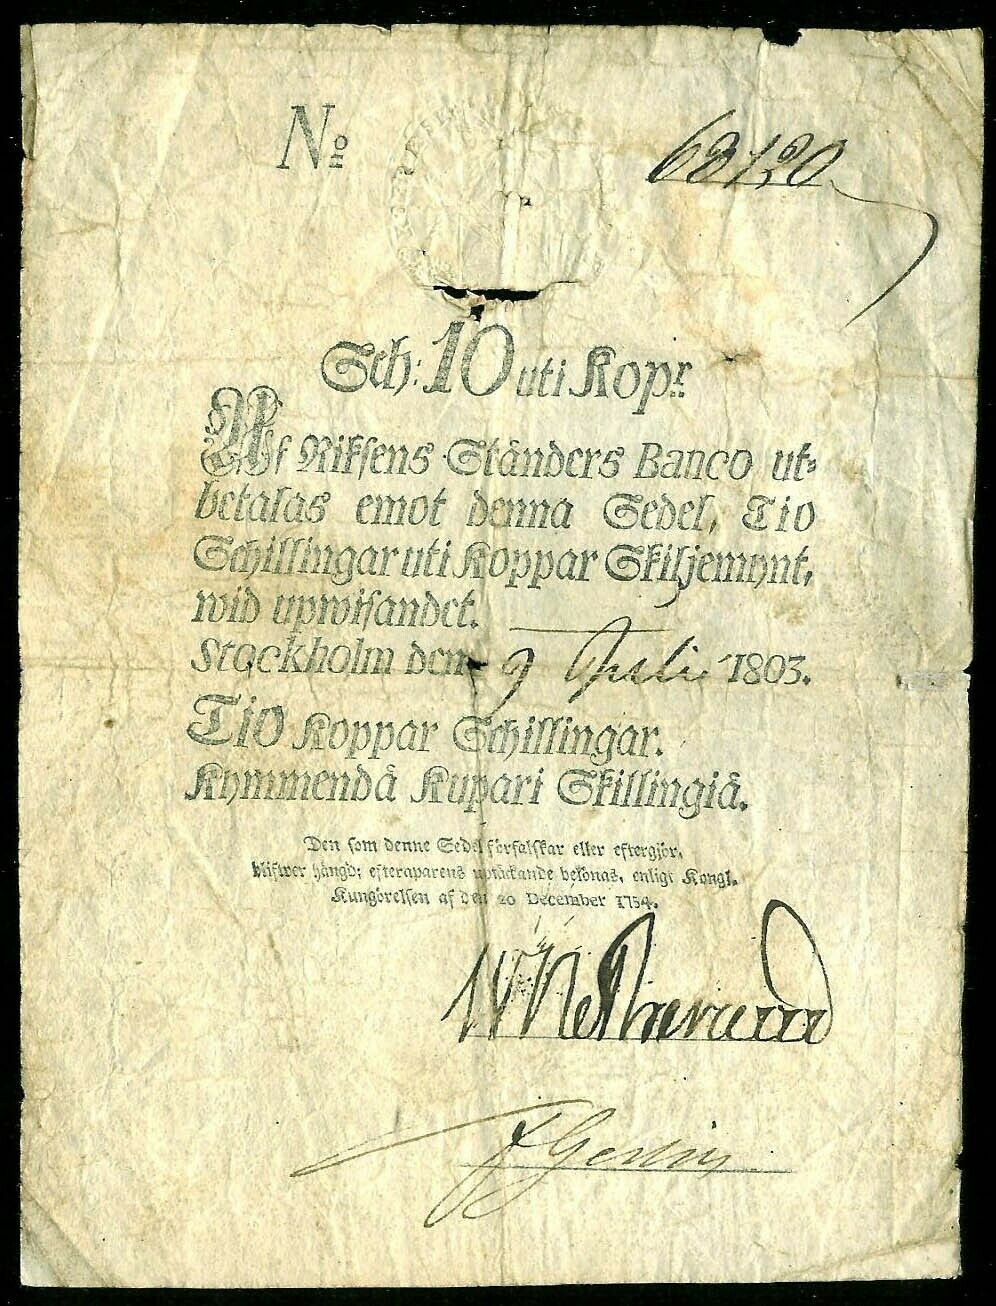 No 68120
Sch: 10 uti Kop.r
Af Riksens Ständers Banco ut-
betalas emot denna Sedel, Tio
Schillingar uti Koppar Skiljemynt,
wid upwisandet.
Stockholm den 9 Julii 1803.
Tio Koppar Schillingar.
Kymmendä Kupari Skillingiä.
Den som denne Sedel förfalskar eller eftergiör,
blifwer hängd; efteraparens uptäckande belönas, enligt Kongl.
Kungörelsen af den 20 December 1754.